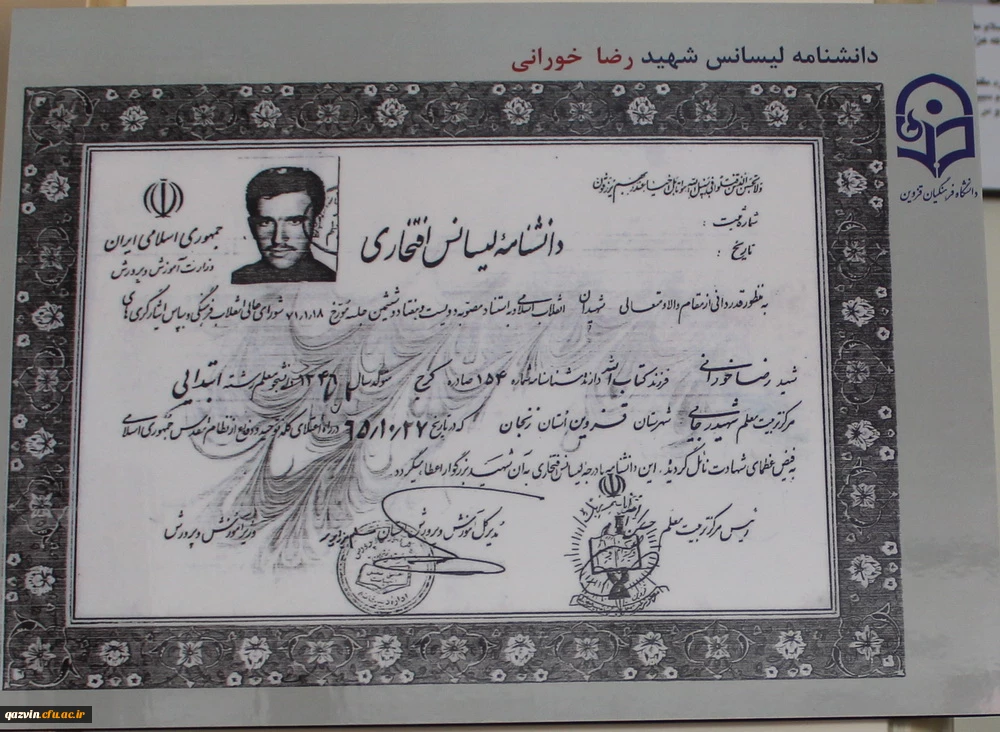 دانشنامه لیسانس شهید رضا خورانی
دانشگاه فرهنگیان قزوین
ولاتحسبن الذین قتلوا فی سبیل الله امواتا بل احیاء عند ربهم یرزقون
شماره ثبت :
تاریخ :
دانشنامهٔ لیسانس افتخاری
جمهوری اسلامی ایران
وزارت آموزش و پرورش
به منظور قدردانی از مقام والا و متعالی شهیدان انقلاب اسلامی و به استناد مصوبه دویست و هفتاد و ششمین جلسه مورخ ۷۱٫۱٫۱۸ شورای عالی انقلاب فرهنگی و بپاس ایثارگری های
شهید رضا خورانی فرزند کتاب الله دارنده شناسنامه شماره ۱۵۴ صادره کرج متولد سال ۱۳۴۵ دانشجو معلم رشته ابتدایی
مرکز تربیت معلم شهید رجایی شهرستان قزوین استان زنجان که در تاریخ ۶۵/۱۰/۲۷ در راه اعتلای کلمه توحید و دفاع از نظام مقدس جمهوری اسلامی
به فیض عظمای شهادت نائل گردید. این دانشنامه با درجه لیسانس افتخاری به آن شهید بزرگوار اعطا میگردد.
رئیس مرکز تربیت معلم
مدیر کل آموزش و پرورش استان
وزیر آموزش و پرورش
qazvin.cfu.ac.ir